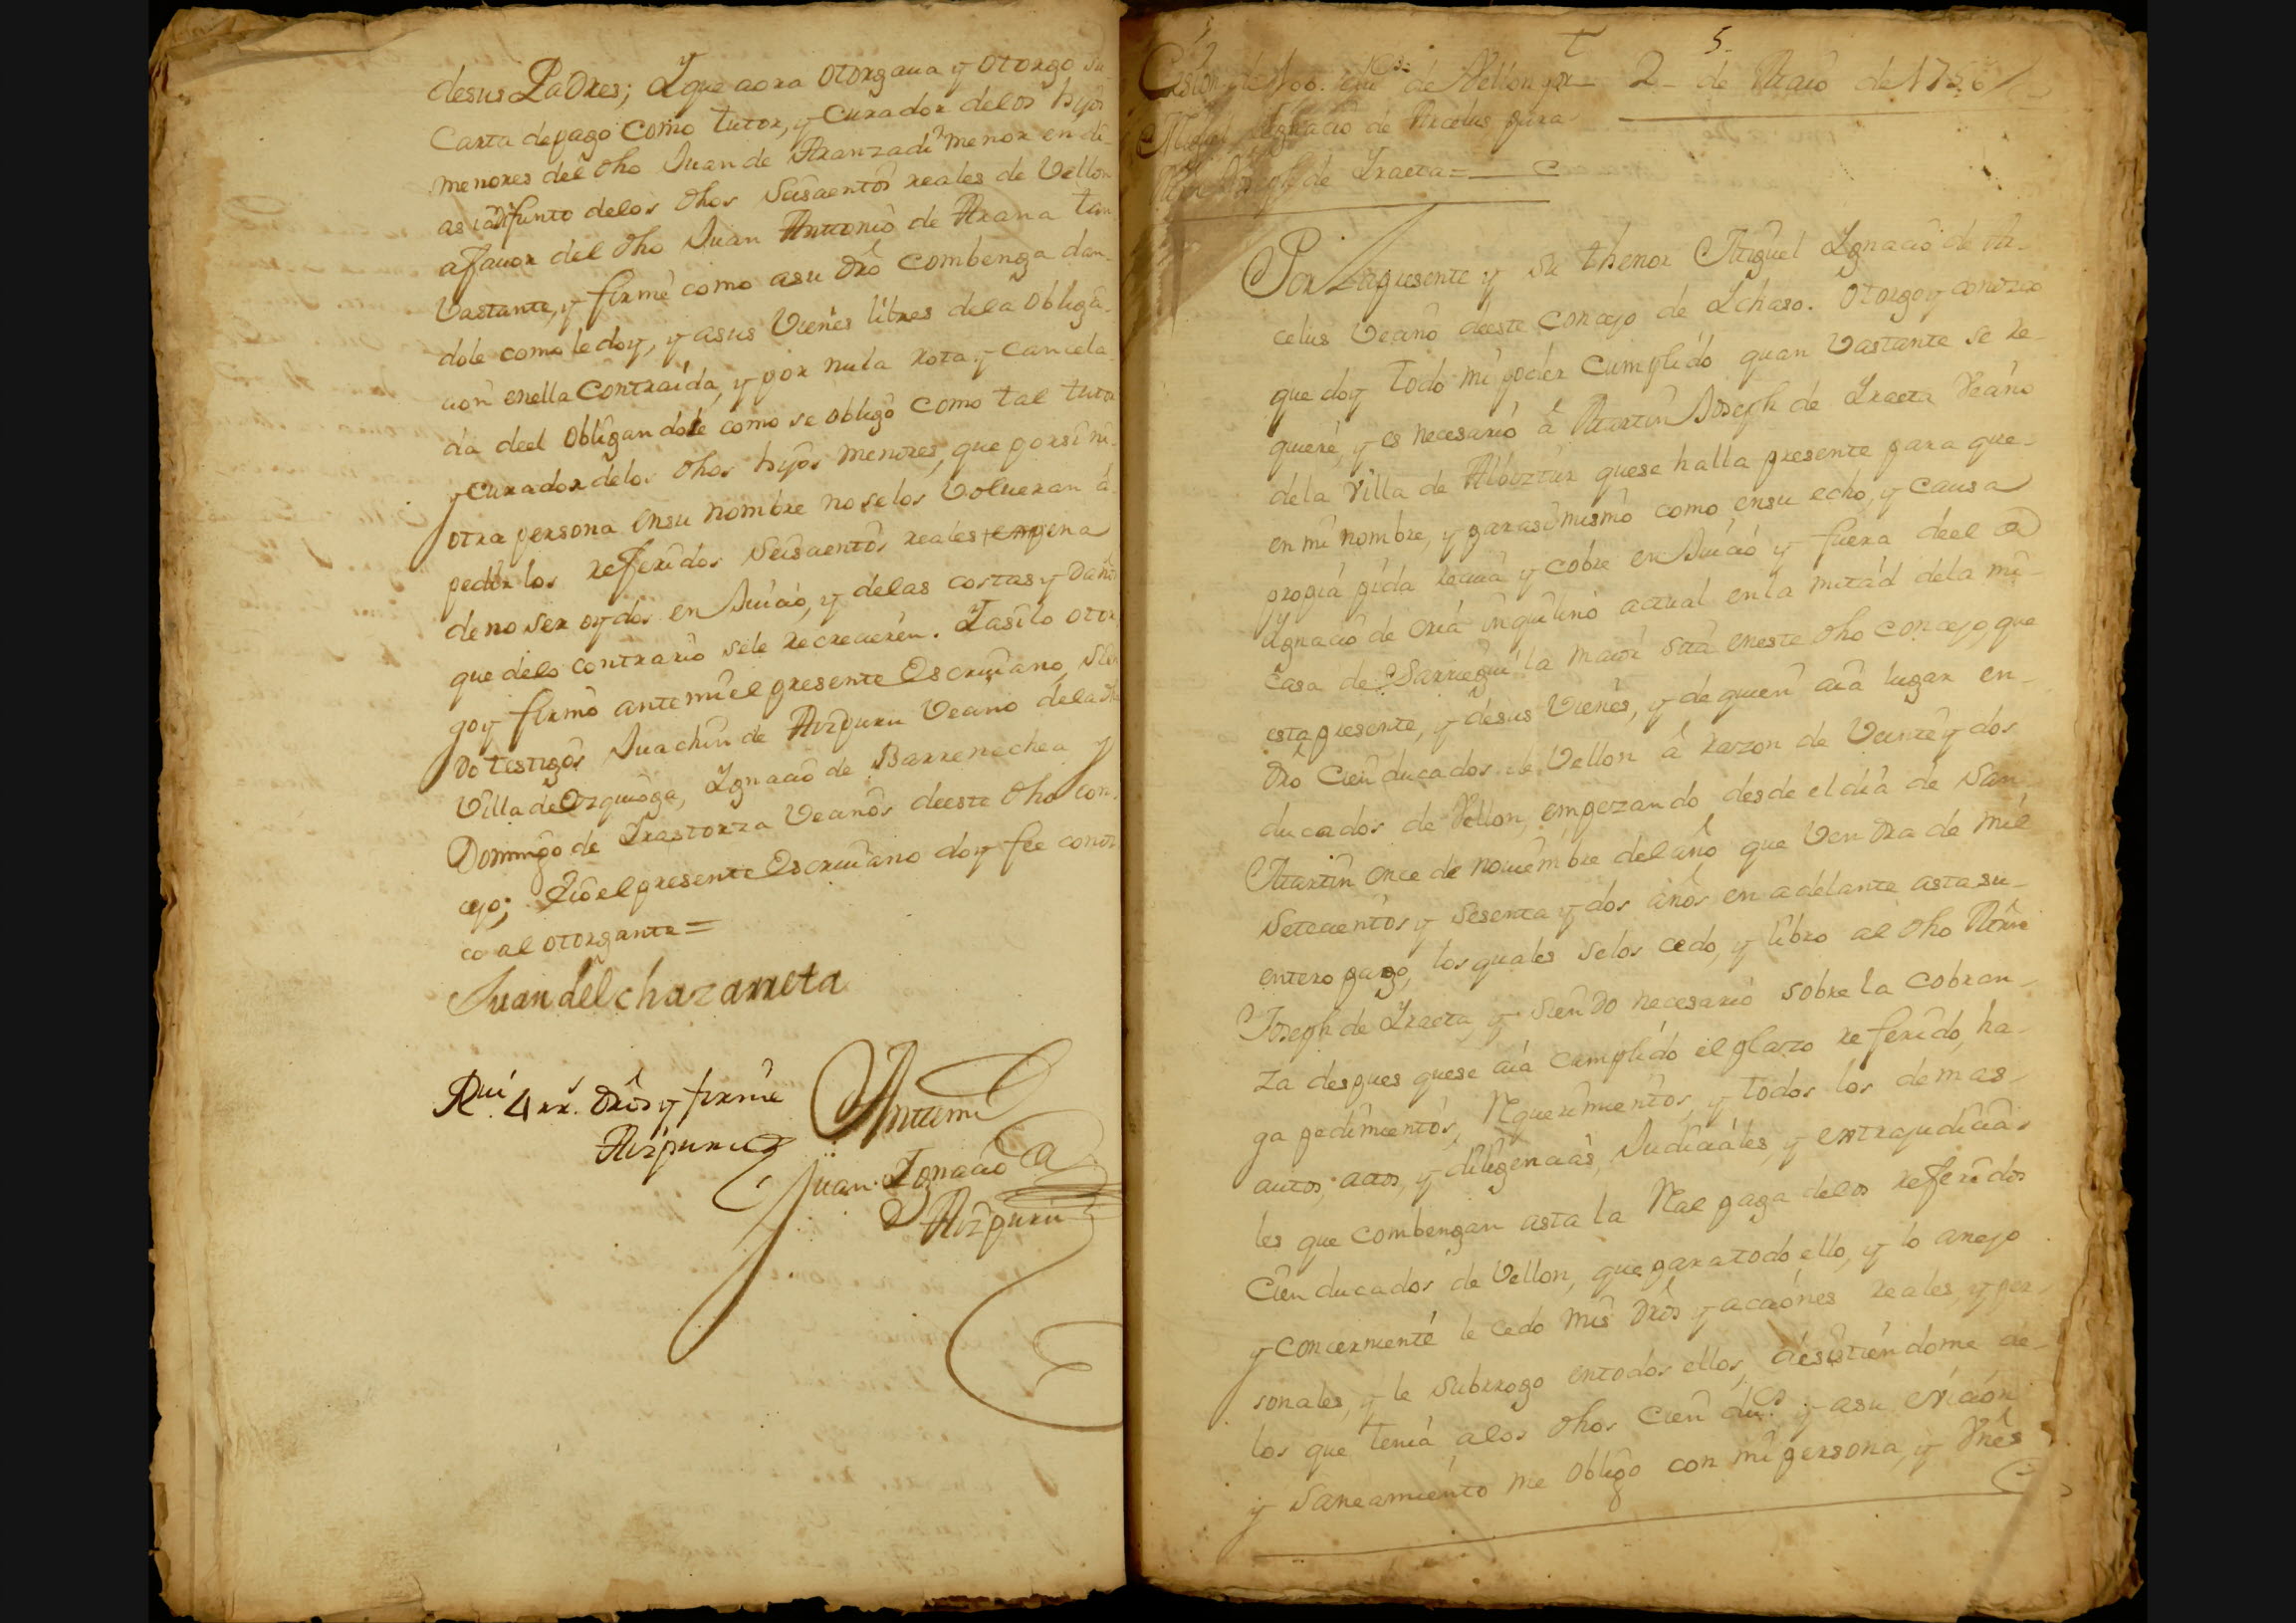 desus Padres; Y que aora otorgaua y otorgo su
Carta de pago como tutor, y Curador delos hijos
menores del dho Juan de Aranzadi menor en di-
as difunto delos dhos Seiscientos reales de Vellon
afauor del dho Juan Antonio de Arana tan
Vastante, y firme como asu dro combenga dan-
dole como le doy, y asus Vienes libres dela obliga-
cion enella Contraida, y por nula rota y cancela
da deel obligandole como se obligó como tal tutor
y Curador delos dhos hijos menores, que por si ni
otra persona ensu nombre no se los Volueran á
pedir los referidos Seiscientos reales pena
de no ser oydos en Juicio, y delas costas y daños
que delo contrario sele recrecieren. Y asi lo otor
gó y firmó ante mi el presente Escriuano, sien
do testigos Juachin de Aizpuru Vecino dela dha
Villa de Ezquioga, Ignacio de Barrenechea y
Domingo de Irastorza Vecinos deeste dho con-
cejo; E io el presente Escriuano doy fee conoz
co al otorgante =
Juan de Echazarreta
Rui 4 rr.s dros y firmé
Aizpuru
Antemi
Juan Ignacio
de Aizpuru
5
Cesion de 100. du.os de Vellon por
Miguel Ignacio de Arcelus para
Joseph de Iraeta =
2 de Maio de 1756
Por la presente y su thenor Miguel Ignacio de Ar-
celus Vecino deeste concejo de Ichaso. Otorgo y conozco
que doy todo mi poder Cumplido quan Vastante se re-
quiere, y es necesario á Martin Joseph de Iraeta Vecino
dela Villa de Albiztur quese halla presente para que
en mi nombre, y para si mismo como ensu echo, y causa
propia pida reciua y cobre en Juicio y fuera deel a
Ignacio de Oria inquilino actual enla mitad dela mi
Casa de Sarriegui la maior sita eneste dho concejo, que
esta presente, y desus Vienes, y de quien aia lugar en
dro Cien ducados de Vellon á razon de Veinte y dos
ducados de Vellon, empezando desde el dia de San
Martin once de nouiembre del año que Vendra de mil
Setecientos y sesenta y dos años en adelante asta su
entero pago, los quales selos cedo, y libro al dho Mrn
Joseph de Iraeta, y siendo necesario sobre la cobran-
za despues quese aia cumplido el plazo referido, ha-
ga pedimientos, Requerimientos, y todos los demas
autos, actos, y diligencias, Judiciales, y extrajudicia-
les que combengan asta la Real paga delos referidos
Cien ducados de Vellon, que para todo ello, y lo anejo
y concerniente le cedo mis dros y acciones reales, y per-
sonales, y le subrrogo entodos ellos, desistiendome de
los que tenia alos dhos Cien du.os y asu eviccion
y Saneamiento me obligo con mi persona, y Vnes